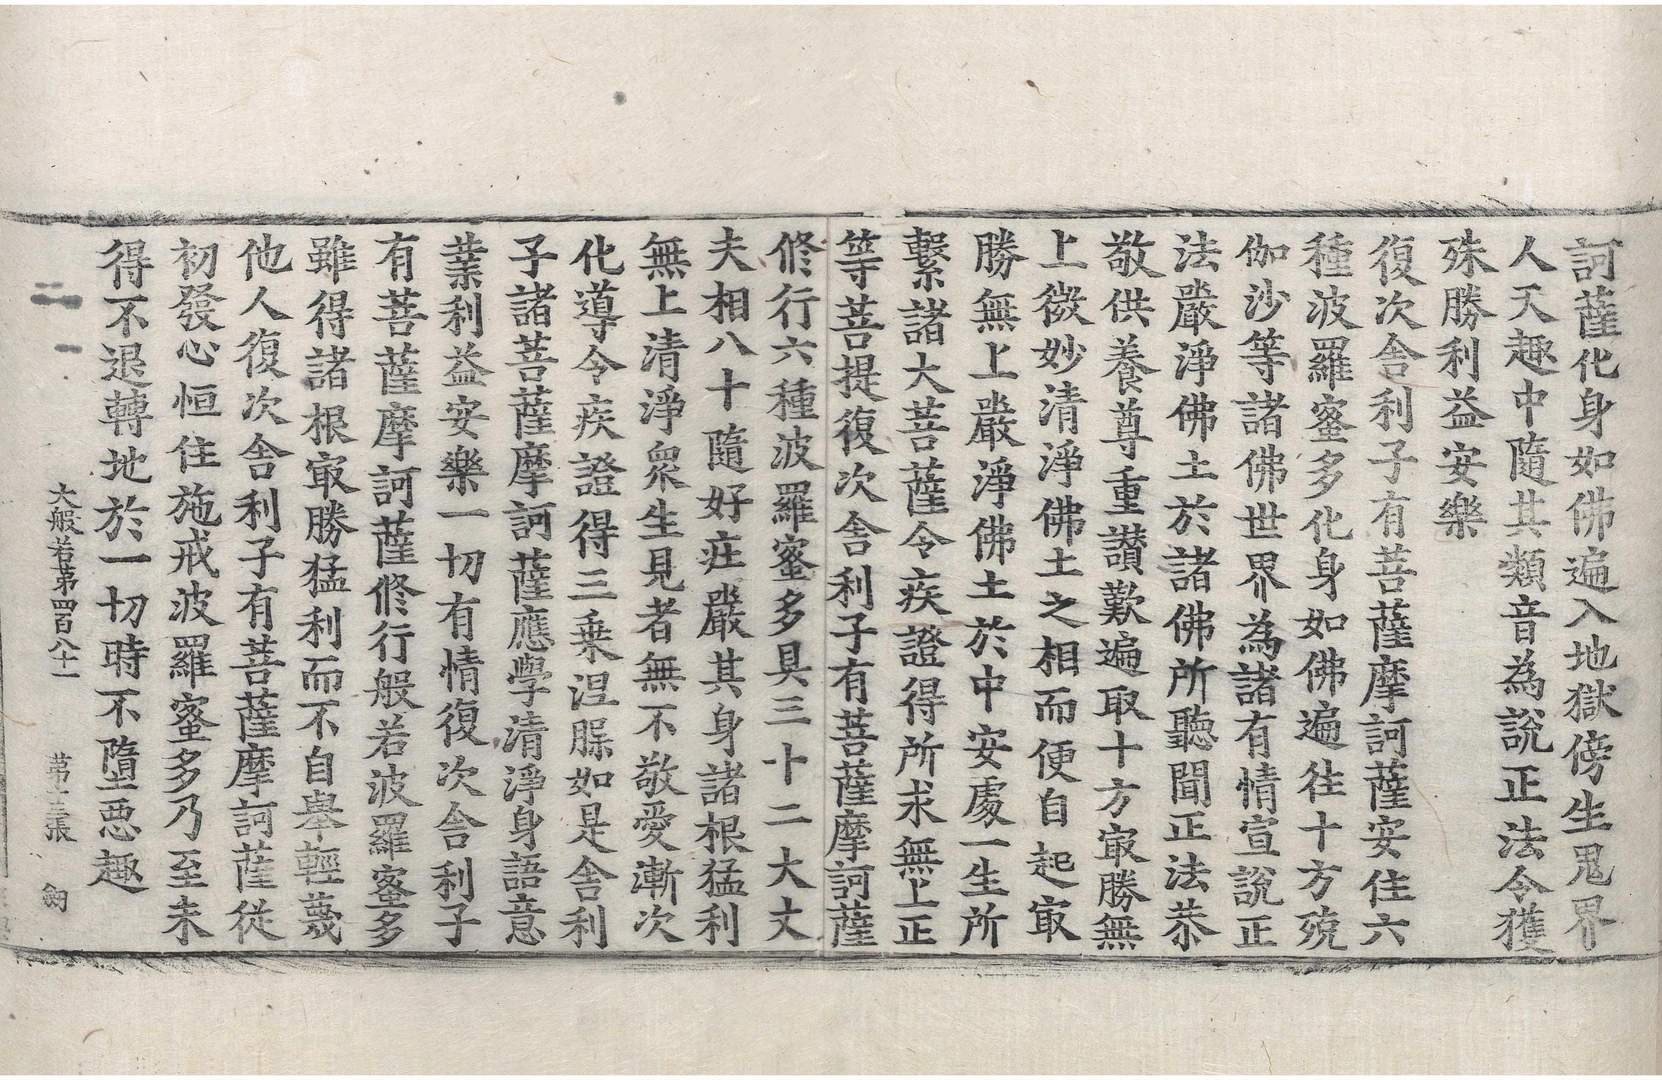 訶薩化身如佛遍入地獄傍生鬼界
人天趣中隨其類音為說正法令獲
殊勝利益安樂
復次舍利子有菩薩摩訶薩安住六
種波羅蜜多化身如佛遍往十方殑
伽沙等諸佛世界為諸有情宣說正
法嚴淨佛土於諸佛所聽聞正法恭
敬供養尊重讚歎遍取十方㝡勝無
上微妙清淨佛土之相而便自起㝡
勝無上嚴淨佛土於中安處一生所
繫諸大菩薩令疾證得所求無上正
等菩提復次舍利子有菩薩摩訶薩
修行六種波羅蜜多具三十二大丈
夫相八十隨好庄嚴其身諸根猛利
無上清淨衆生見者無不敬愛漸次
化導令疾證得三乗涅槃如是舍利
子諸菩薩摩訶薩應學清淨身語意
業利益安樂一切有情復次舍利子
有菩薩摩訶薩修行般若波羅蜜多
雖得諸根㝡勝猛利而不自舉輕蔑
他人復次舍利子有菩薩摩訶薩從
初發心恒住施戒波羅蜜多乃至未
得不退轉地於一切時不墮惡趣
大般若第四百八十一 第十三張